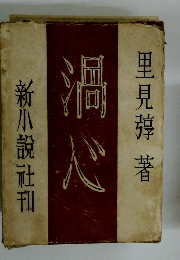 里見弴 著
渦心
新小說社刊